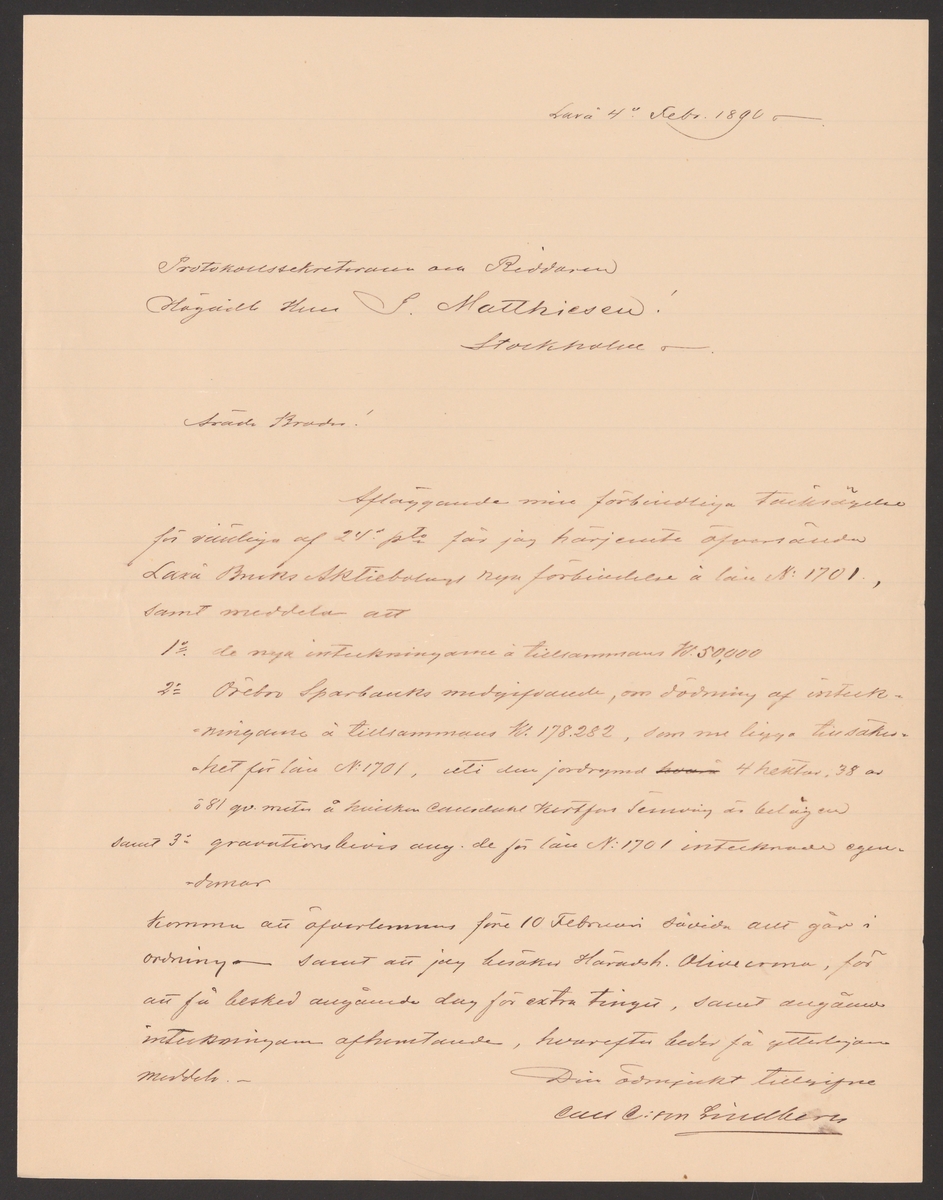 Laxå 4de Febr. 1890
Protokollssekreteraren och Riddaren
Högädle Herr S. Matthiesen!
Stockholm
Ärade Broder!
Afläggande min förbindliga tacksägelse
för vänliga af 24de pto får jag härjemte öfversända
Laxå Bruks Aktiebolags nya förbindelse å lån No 1701.,
samt meddela att
1o de nya inteckningarne å tillsammans Kr. 50,000
2o Örebro Sparbanks medgifvande, om dödning af inteck-
-ningarne å tillsammans Kr. 178.282, som nu ligga till säker-
-het för lån No 1701, uti den jordrymd 4 hektar, 38 ar
o 81 qv. meter å hvilken belägen
samt 3o gravationsbevis ang. de för lån No 1701 intecknade egen-
-domar
komma att öfverlemnas före 10 Februari såvida allt går i
ordning samt att jag besöker Häradsh. Olivecrona, för
att få besked angående dag för extra tinget, samt angående
inteckningarne afhemtande, hvarefter beder få ytterligare
meddela. —
Din ödmjukt tillgifne
Carl C:son Lindberg